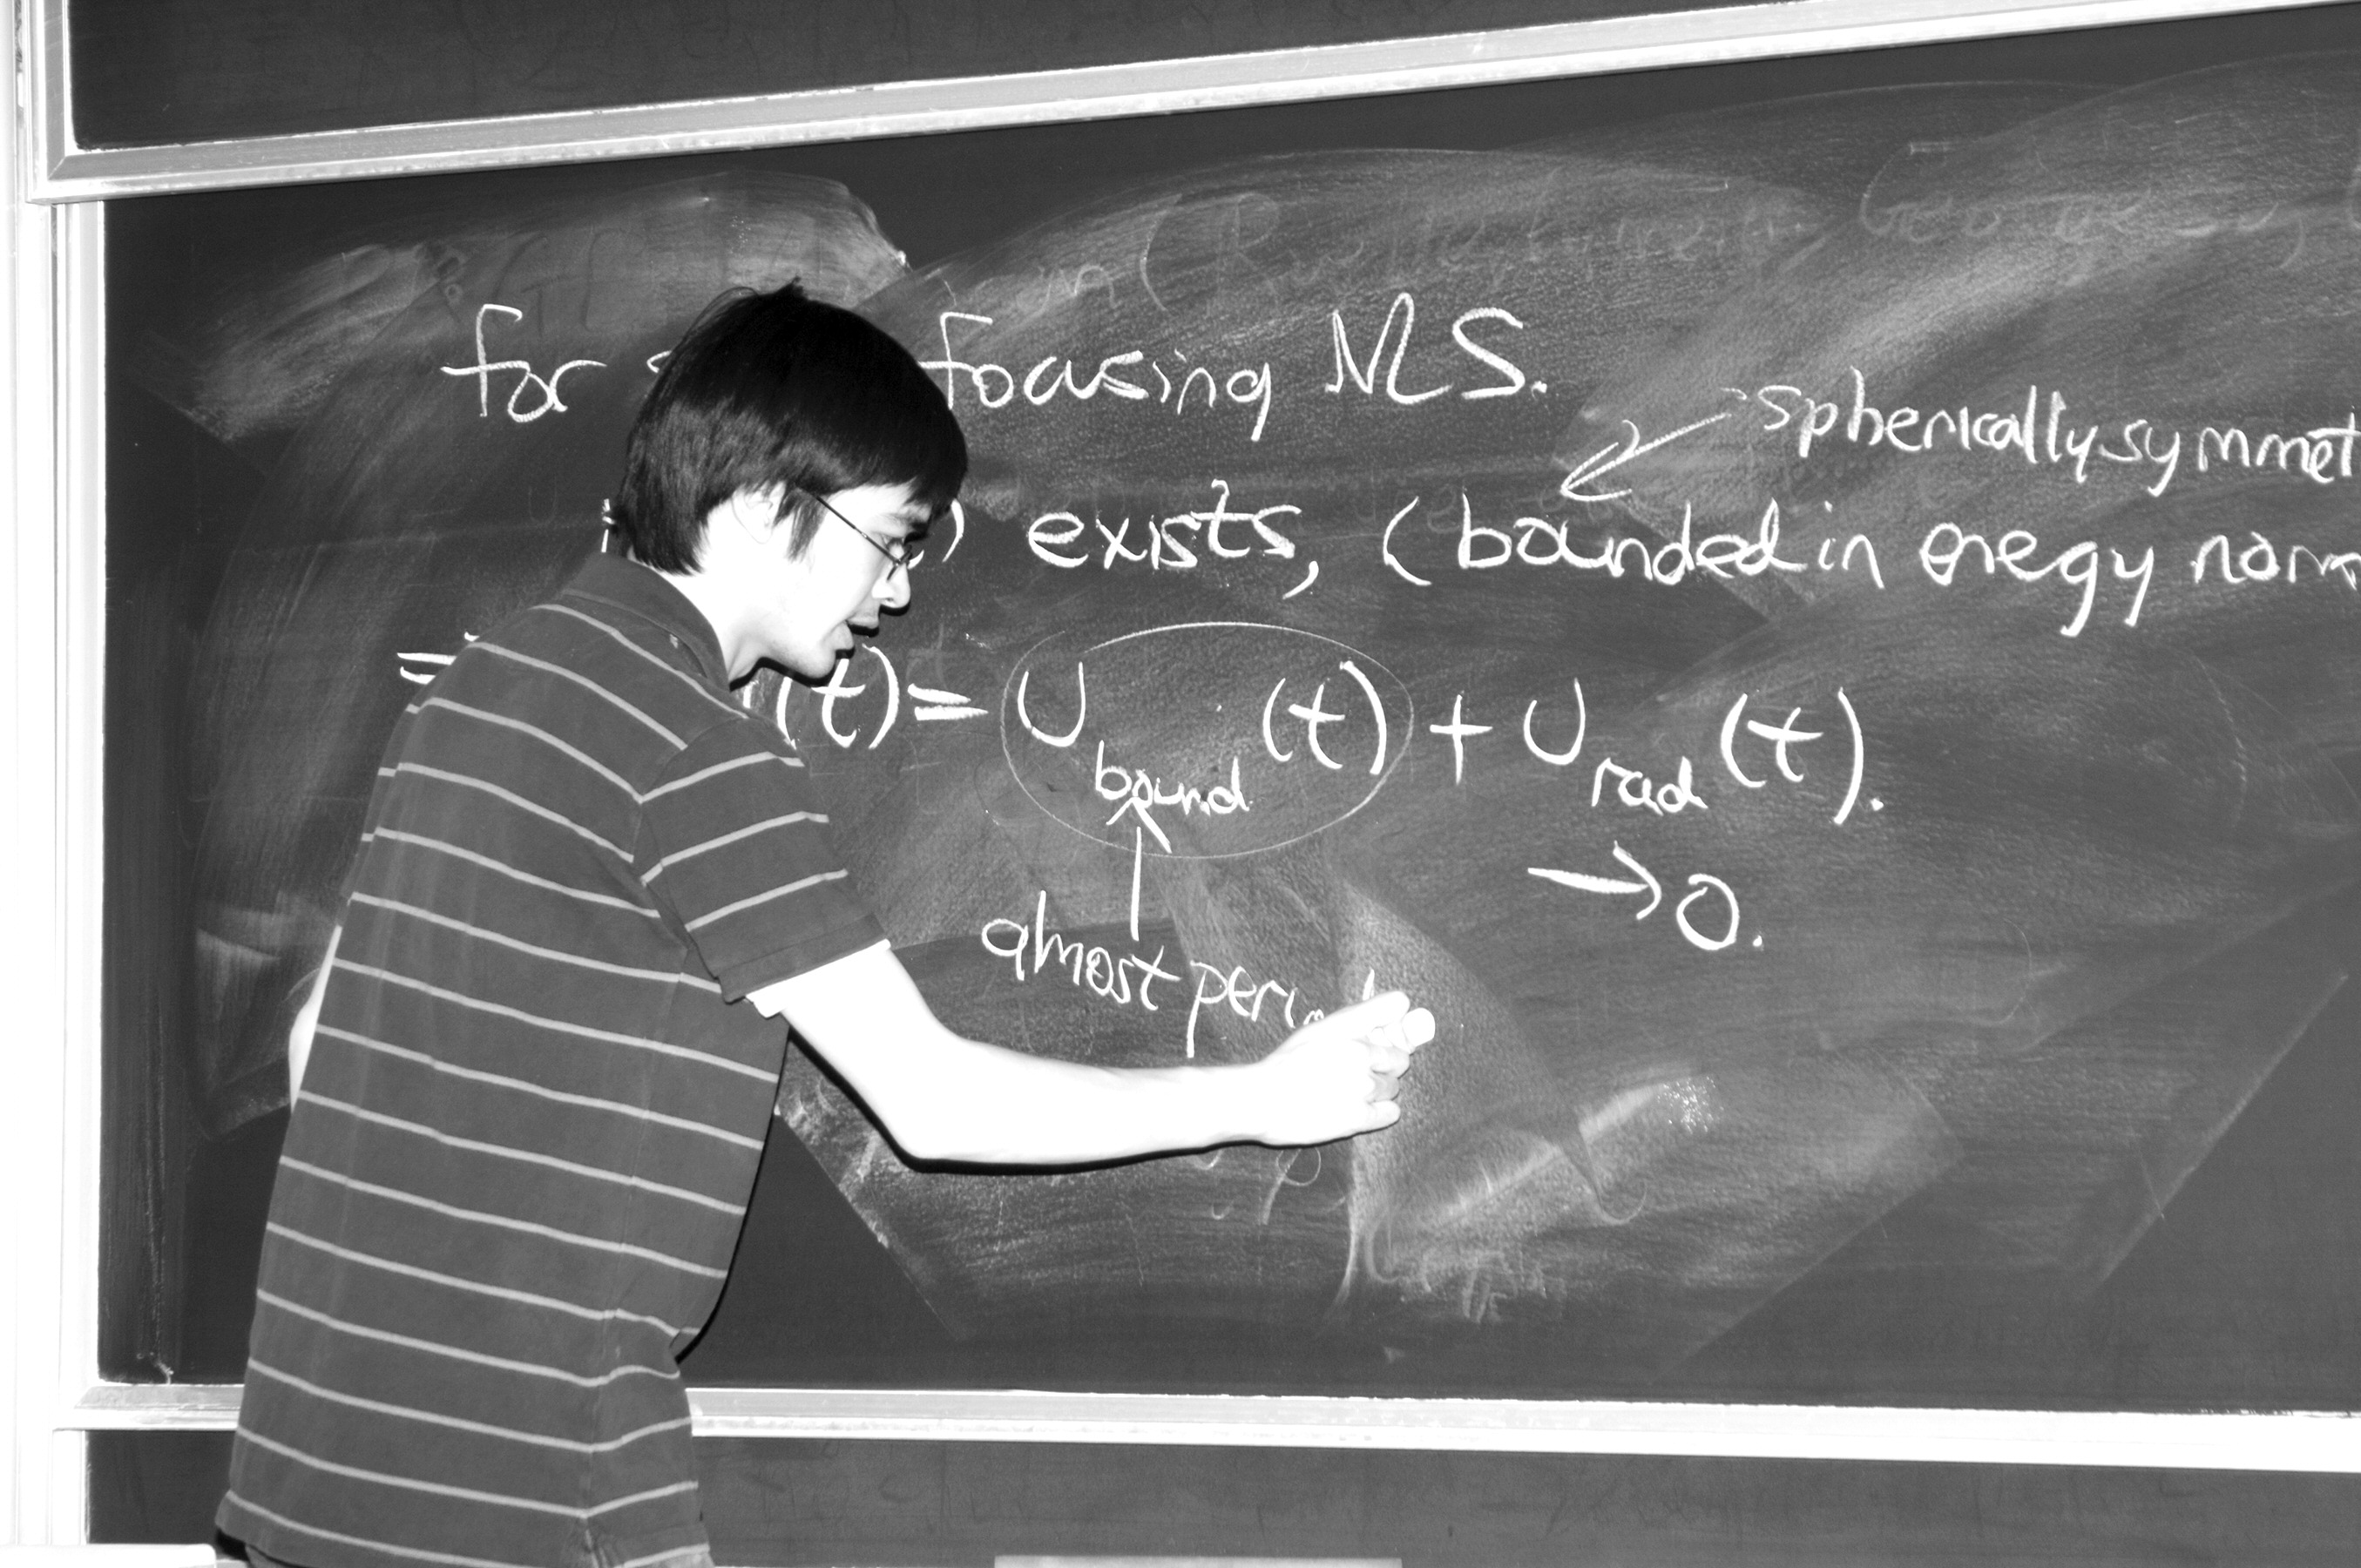 for focusing NLS.
spherically symmet
) exists, (bounded in enegy norm
= (t) = U bound (t) + U rad (t).
→ 0.
almost peri